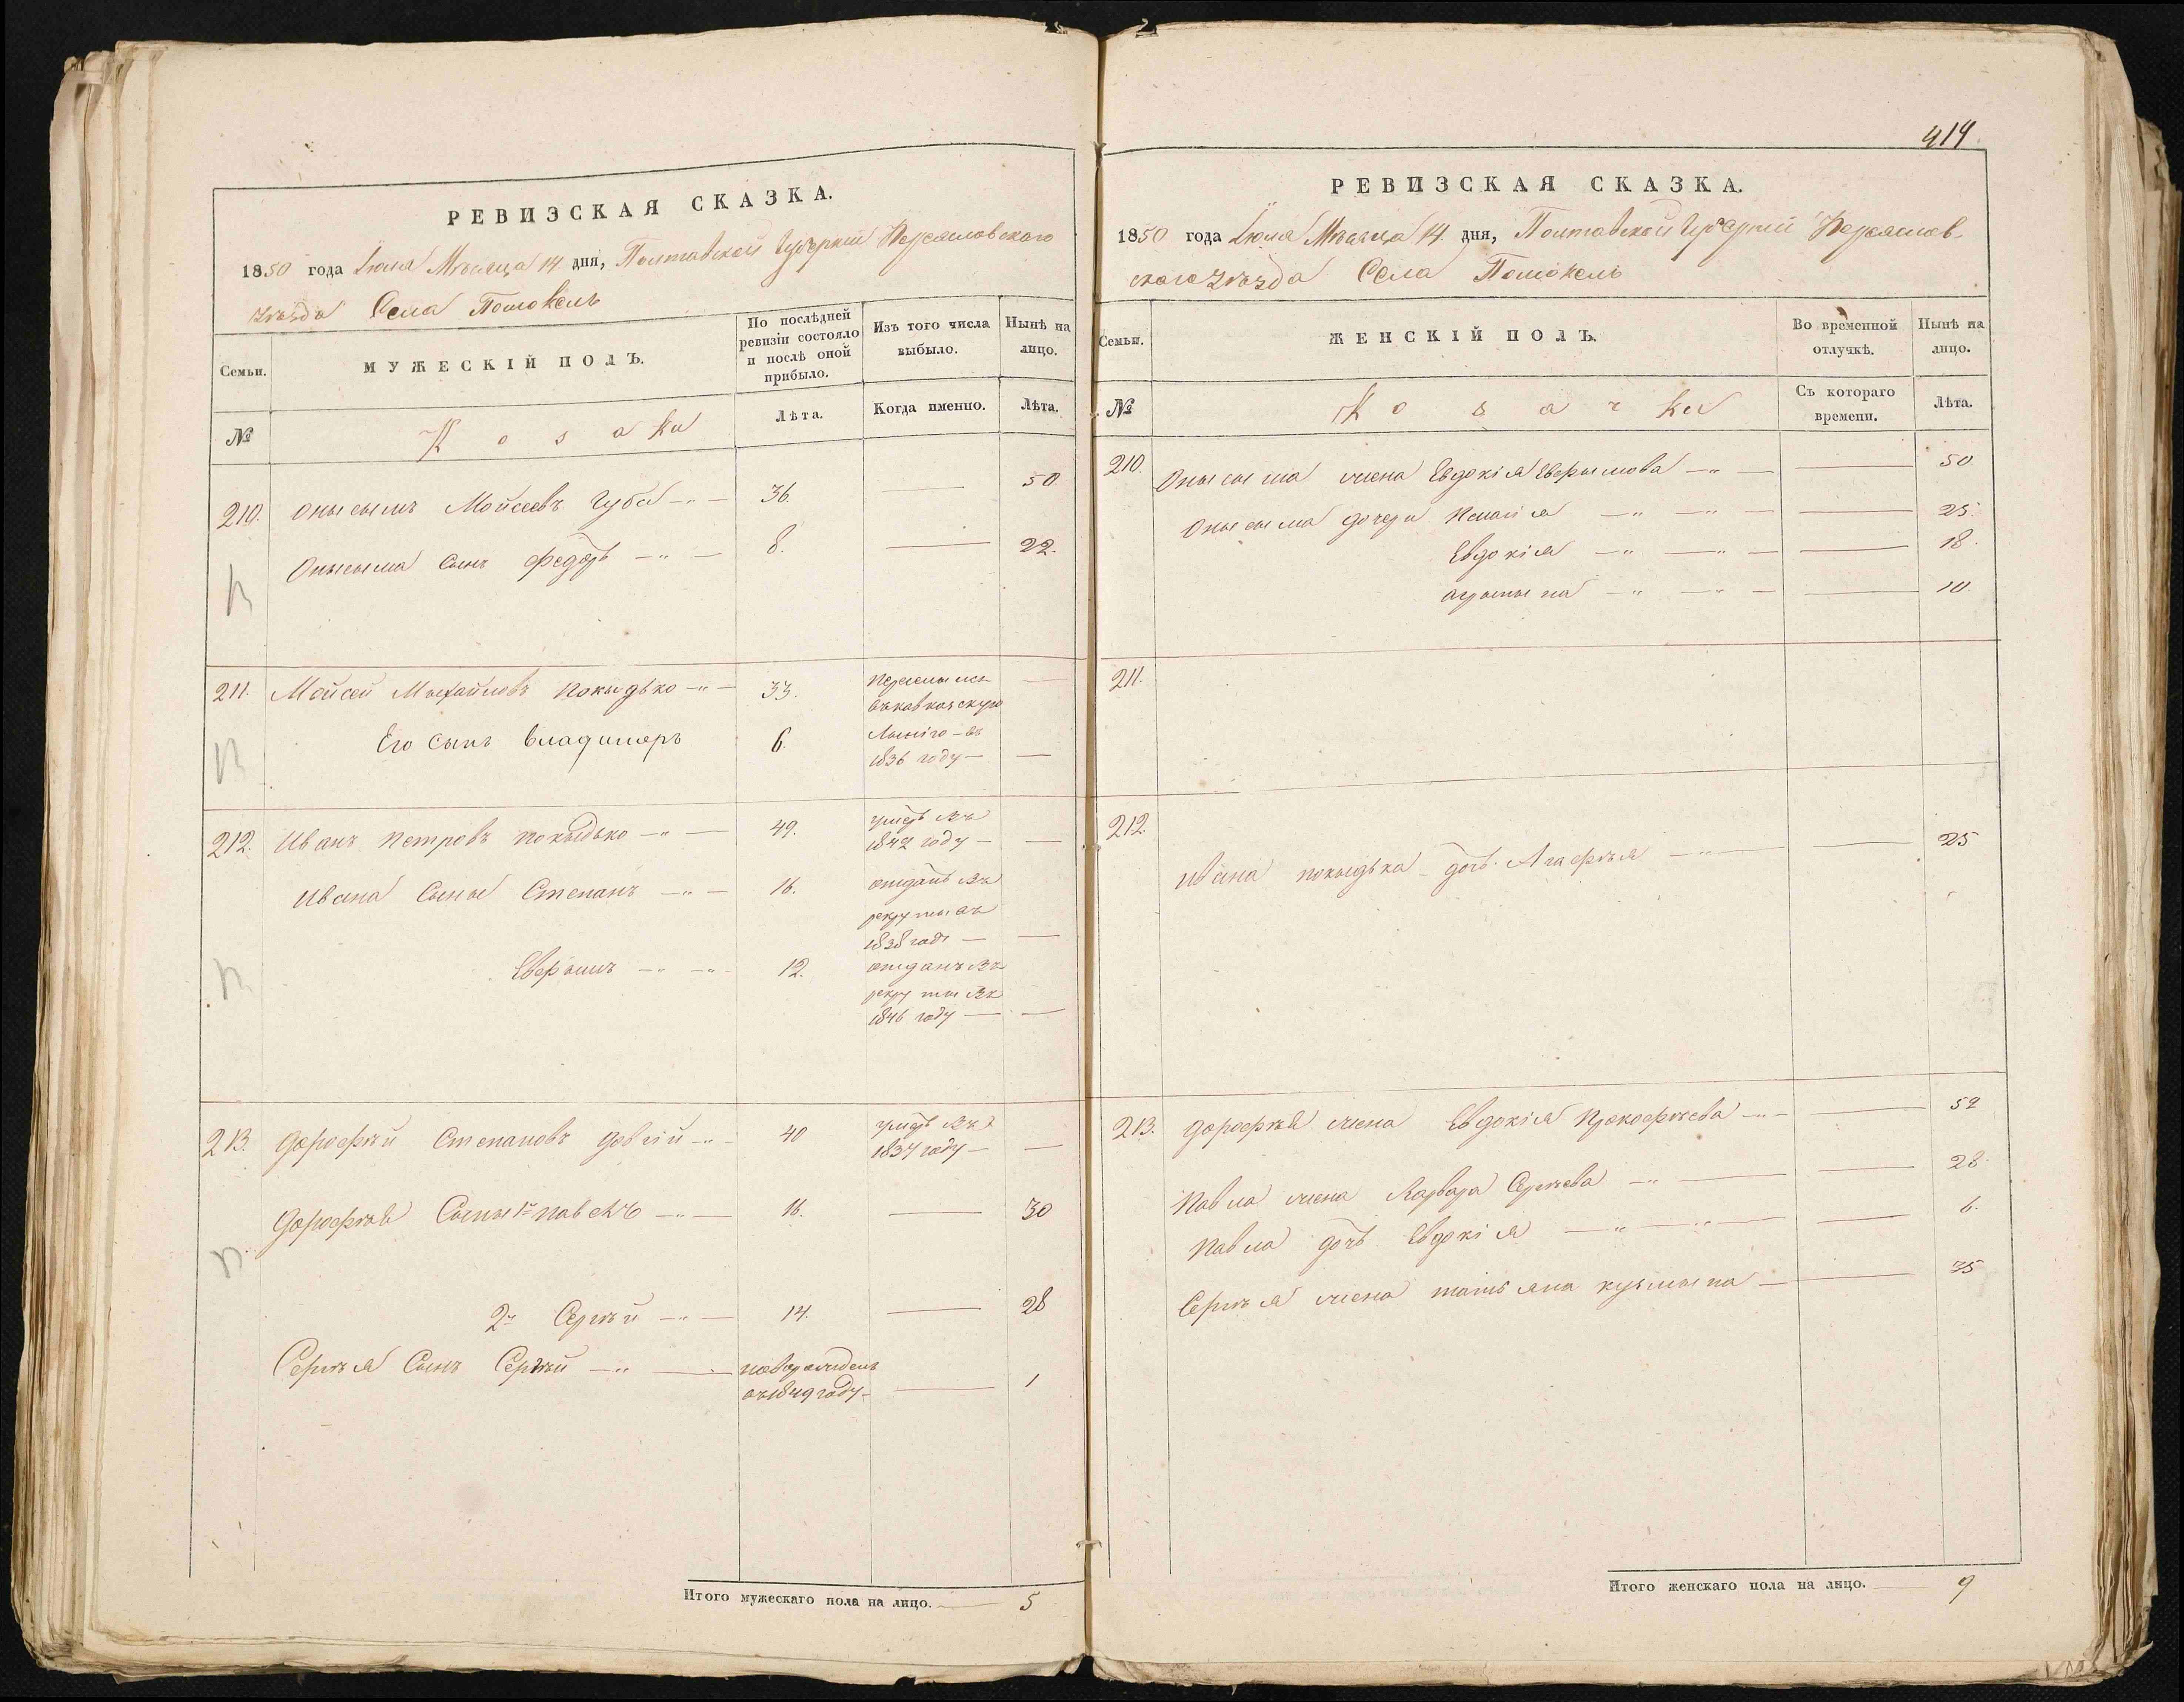 РЕВИЗСКАЯ СКАЗКА.
1850 года Іюля Мѣсяца 14 дня, Полтавской Губерніи Переяславского
уѣзда Села Помокель
Семьи.
МУЖЕСКІЙ ПОЛЪ.
По послѣдней ревизіи состояло и послѣ оной прибыло.
Изъ того числа выбыло.
Нынѣ на лицо.
№
Козаки
Лѣта.
Когда именно.
Лѣта.
210. Онысымъ Мойсеевъ Губа -"- 36. — 50
Онысыма Сынъ Федоръ -"- 8. — 22.
211. Мойсей Мыхайловъ Покыдько -"- 33. Переселились —
въ кавказскую
Его Сынъ Владимеръ 6. Линію - въ
1836 году — —
212. Иванъ Петровъ Покыдько -"- 49. умеръ Въ
1842 году — —
Ивана Сыны Степанъ -"- 16. отданъ Въ
рекруты въ
1838 годѣ — —
Евфымъ -"- -"- 12. отданъ Въ
рекруты Въ
1846 году — —
213. Дорофѣй Степановъ Довгій -"- 40 умеръ Въ
1837 году — —
Дорофѣя Сыны 1й Павелъ -"- 16. — 30
2й Сергѣй -"- 14. — 28
Сергѣя Сынъ Сергѣй -"- — новорожденъ
въ 1849 году — — 1
Итого мужескаго пола на лицо. — 5
414
РЕВИЗСКАЯ СКАЗКА.
1850 года Іюля Мѣсяца 14 дня, Полтавской Губерніи Переяслав-
ского Уѣзда Села Помокель
Семьи.
ЖЕНСКІЙ ПОЛЪ.
Во временной отлучкѣ.
Нынѣ на лицо.
№
Козачки
Съ котораго времени.
Лѣта.
210. Онысыма жена Евдокія Евфымова -"- — 50
Онысыма дочери Пелагія -"- -"- — 25
Евдокія -"- -"- — 18.
-"- -"- — 10
211.
212.
Ивана покыдька дочь Агафія -"- — 25
213. Дорофѣя жена Евдокія Прокофѣева -"- — 52
Павла жена Варвара Сергѣева -"- — 28.
Павла дочь Евдокія -"- -"- — 6.
Сергѣя жена татьяна кузмына — — 35
Итого женскаго пола на лицо. — 9